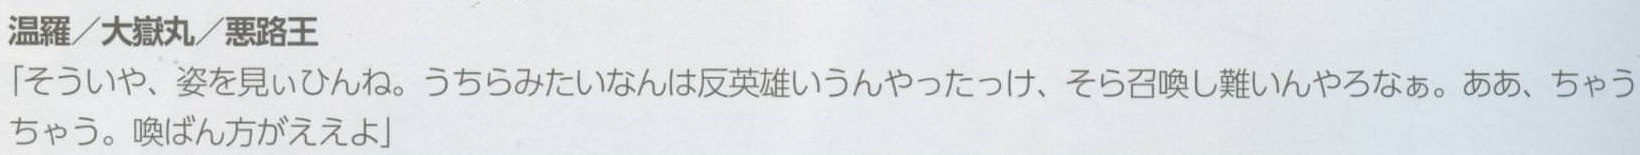 温羅／大嶽丸／悪路王
「そういや、姿を見ぃひんね。うちらみたいなんは反英雄いうんやったっけ、そら召喚し難いんやろなぁ。ああ、ちゃう
ちゃう。喚ばん方がええよ」